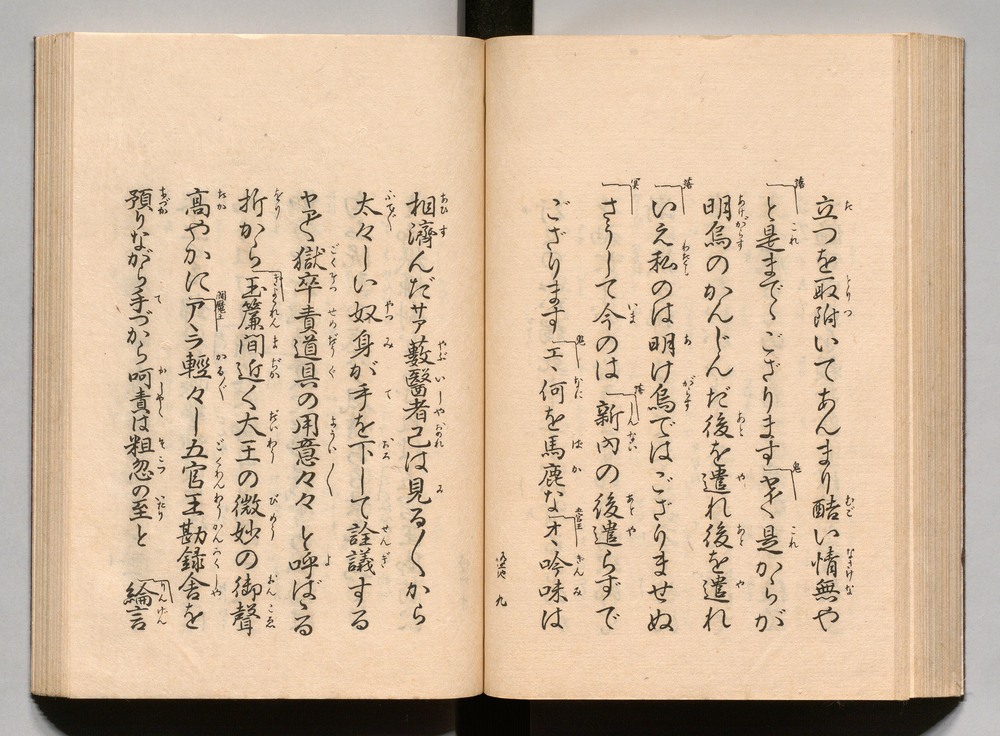 立つを取附いてあんまり酷い情無や
と是までゝござります ヤア〱是からが
明烏のかんじんだ後を遣れ後を遣れ
いえ私のは明け烏ではござりませぬ
さうして今のは 新内の後遣らずで
ござります エヽ何を馬鹿な オヽ吟味は
九
相濟んだサア藪醫者己は見る〱から
太々しい奴身が手を下して詮議する
ヤア〱獄卒責道具の用意々々 と呼ばゝる
折から 玉簾間近く大王の微妙の御聲
高やかに アヽラ輕々し五官王勘録舍を
預りながら手づから呵責は粗忽の至と 綸言